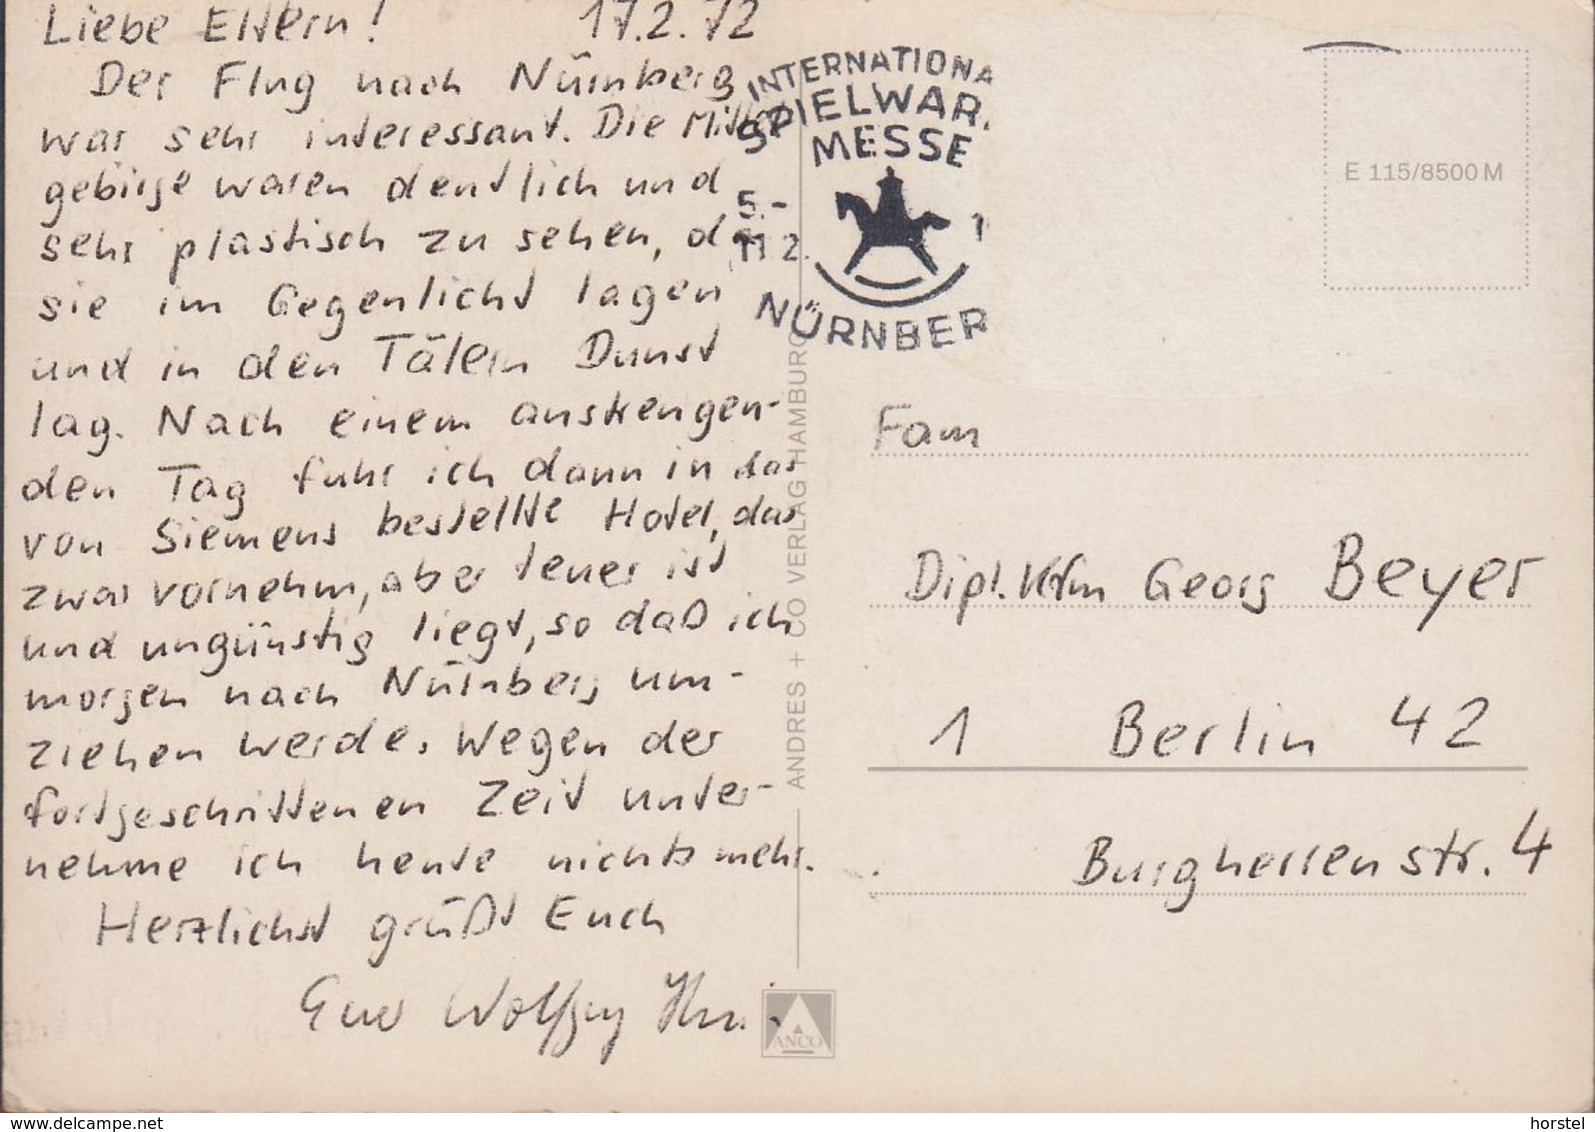 Liebe Eltern! 17.2.72
Der Flug nach Nürnberg
war sehr interessant. Die Mittel
gebirge waren deutlich und
sehr plastisch zu sehen, da
sie im Gegenlicht lagen
und in den Tälern Dunst
lag. Nach einem anstrengen-
den Tag fuhr ich dann in das
von Siemens bestellte Hotel, das
zwar vornehm, aber teuer ist
und ungünstig liegt, so daß ich
morgen nach Nürnberg um-
ziehen werde. Wegen der
fortgeschrittenen Zeit unter-
nehme ich heute nichts mehr.
Herzlichst grüßt Euch
Euer Wolfgang
INTERNATIONA
SPIELWAR.
MESSE
5.-
11 2. 1
NÜRNBER
E 115/8500 M
ANDRES + CO VERLAG HAMBURG
ANCO
Fam
Dipl. Kfm Georg Beyer
1 Berlin 42
Burgherrenstr. 4
www.delcampe.net
horstel